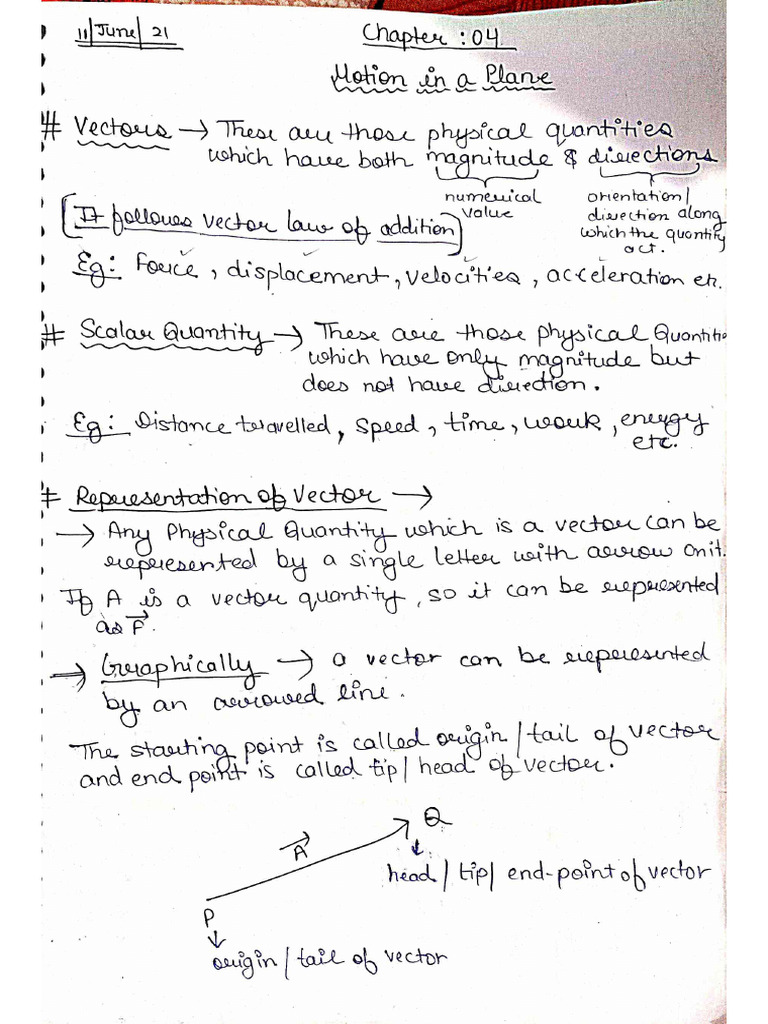 11/June/21
Chapter : 04
Motion in a Plane
# Vectors → These are those physical quantities
which have both magnitude & directions
numerical value
orientation/
direction along
which the quantity
act.
[It follows vector law of addition]
Eg: Force, displacement, velocities, acceleration etc.
# Scalar Quantity → These are those physical Quantiti
which have only magnitude but
does not have direction.
Eg: Distance travelled, speed, time, work, energy
etc.
# Representation of Vector →
→ Any Physical Quantity which is a vector can be
represented by a single letter with arrow on it.
If A is a vector quantity, so it can be represented
as A⃗.
→ Graphically → a vector can be represented
by an arrowed line.
The starting point is called origin/tail of vector
and end point is called tip/head of vector.
Q
A⃗
head/tip/end-point of vector
P
origin/tail of vector